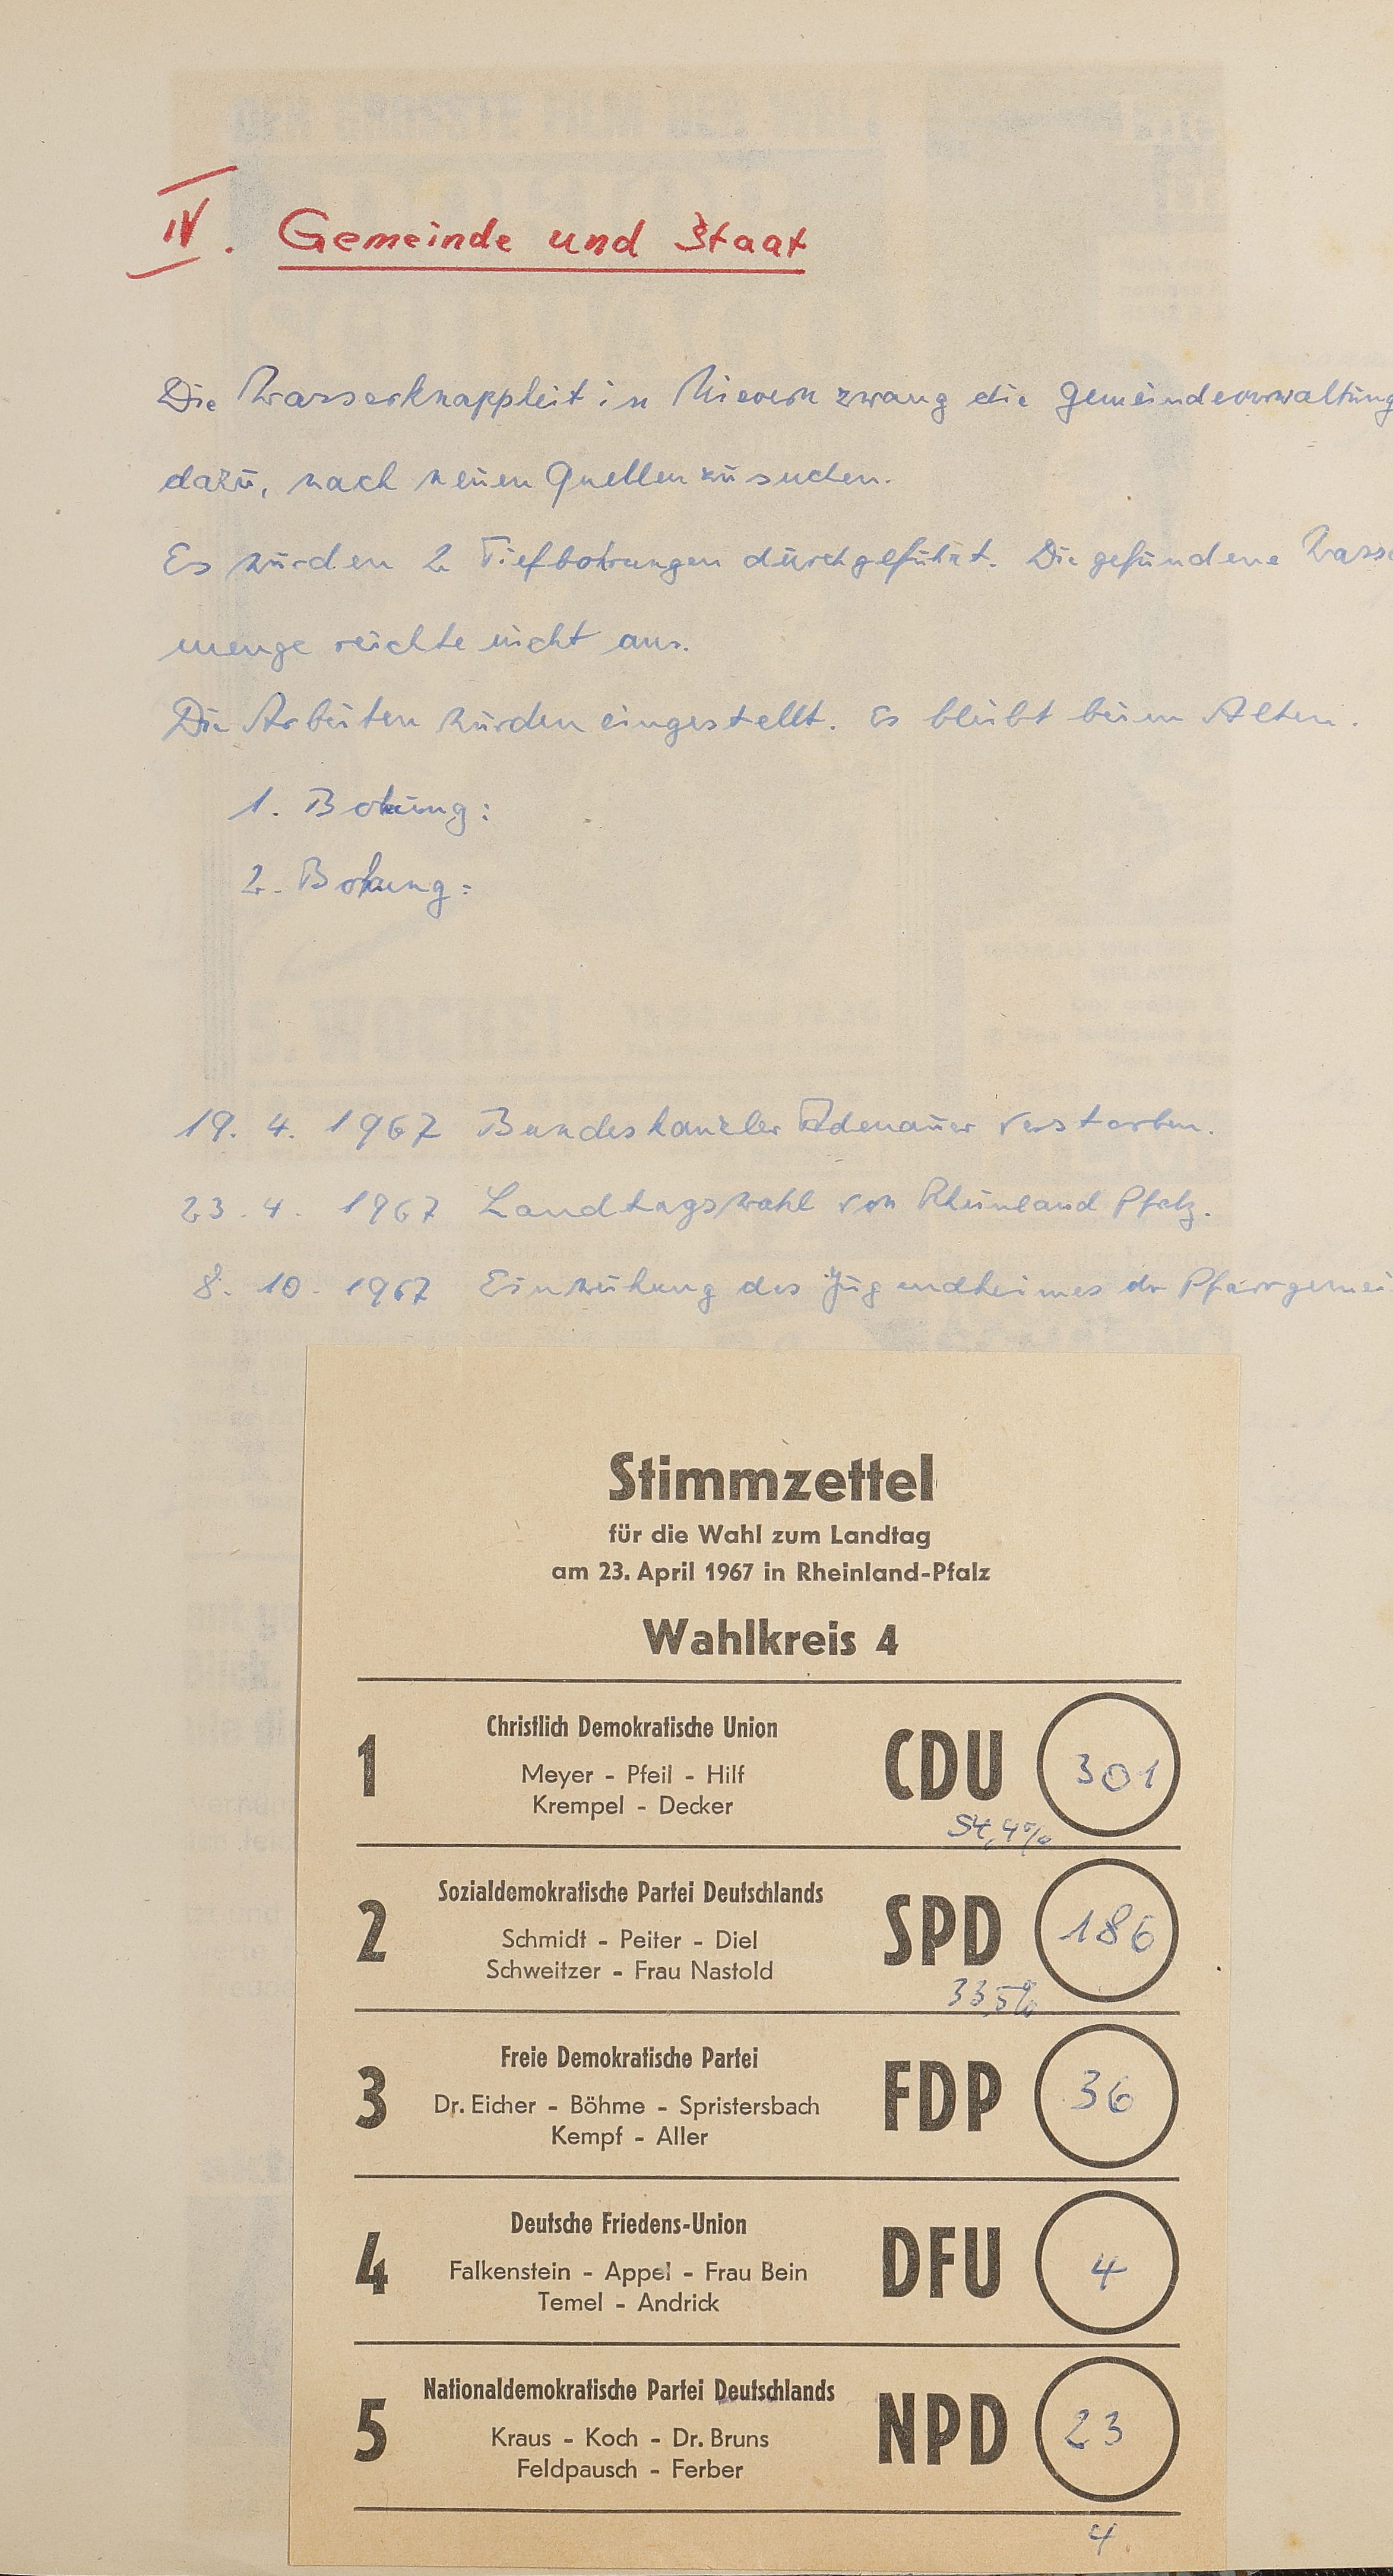 IV. Gemeinde und Staat
Die Wasserknappheit in Nievern zwang die Gemeindeverwaltung
dazu, nach neuen Quellen zu suchen.
Es wurden 2 Tiefbohrungen durchgeführt. Die gefundene Wasse
menge reichte nicht aus.
Die Arbeiten wurden eingestellt. Es bleibt beim Alten.
1. Bohrung:
2. Bohrung:
19. 4. 1967 Bundeskanzler Adenauer verstorben.
23. 4. 1967 Landtagswahl von Rheinland Pfalz.
8. 10. 1967 Einweihung des Jugendheimes der Pfarrgemei
Stimmzettel
für die Wahl zum Landtag
am 23. April 1967 in Rheinland-Pfalz
Wahlkreis 4
1 Christlich Demokratische Union CDU 301
Meyer - Pfeil - Hilf
Krempel - Decker
54,4%
2 Sozialdemokratische Partei Deutschlands SPD 186
Schmidt - Peiter - Diel
Schweitzer - Frau Nastold
33,5%
3 Freie Demokratische Partei FDP 36
Dr. Eicher - Böhme - Spristersbach
Kempf - Aller
4 Deutsche Friedens-Union DFU 4
Falkenstein - Appel - Frau Bein
Temel - Andrick
5 Nationaldemokratische Partei Deutschlands NPD 23
Kraus - Koch - Dr. Bruns
Feldpausch - Ferber
4